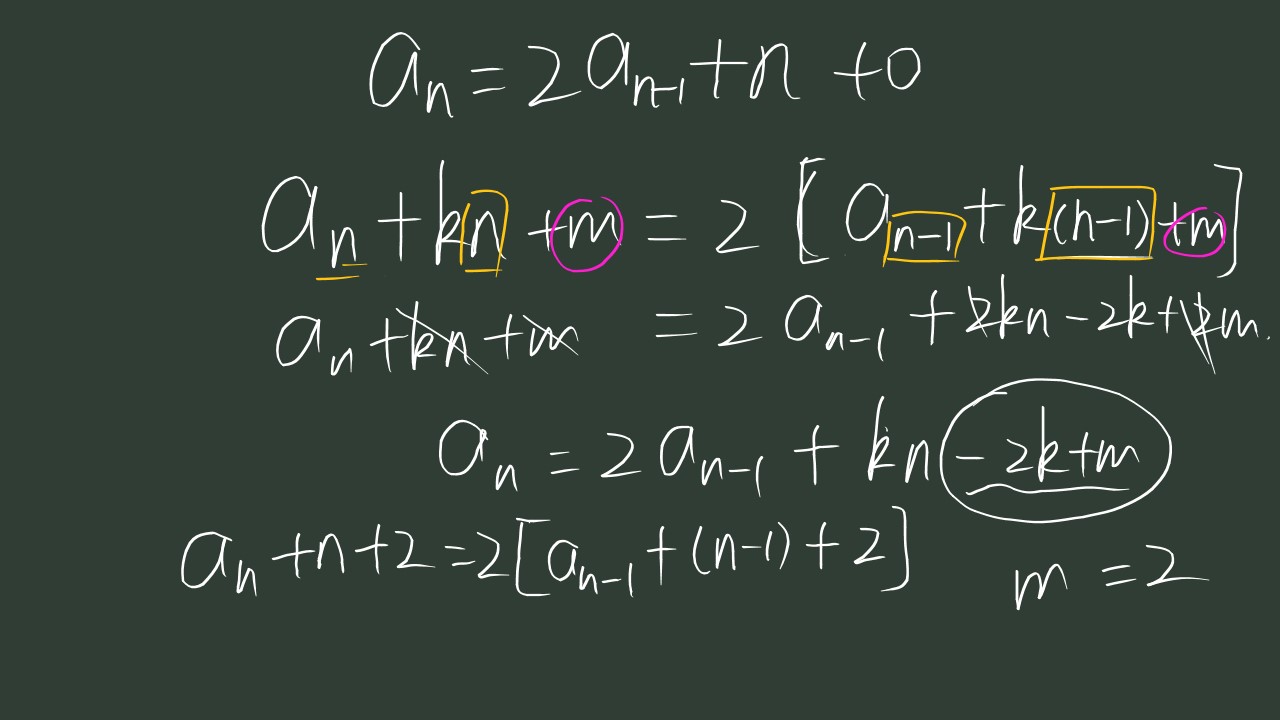 aₙ = 2aₙ₋₁ + n + 0
aₙ + kn + m = 2[aₙ₋₁ + k(n-1) + m]
aₙ + kn + m = 2aₙ₋₁ + 2kn - 2k + 2m.
aₙ = 2aₙ₋₁ + kn - 2k + m
aₙ + n + 2 = 2[aₙ₋₁ + (n-1) + 2]
m = 2